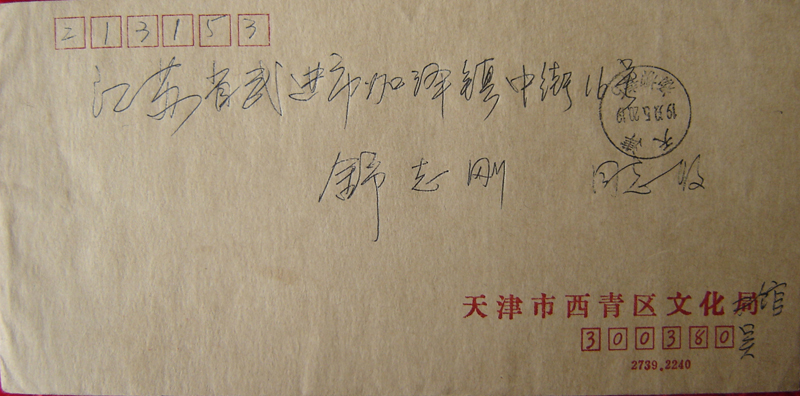 213153
江苏省武进市加泽镇中街16号
舒志刚 同志收
天津
天津市西青区文化局馆
300380 吴
2739.2240